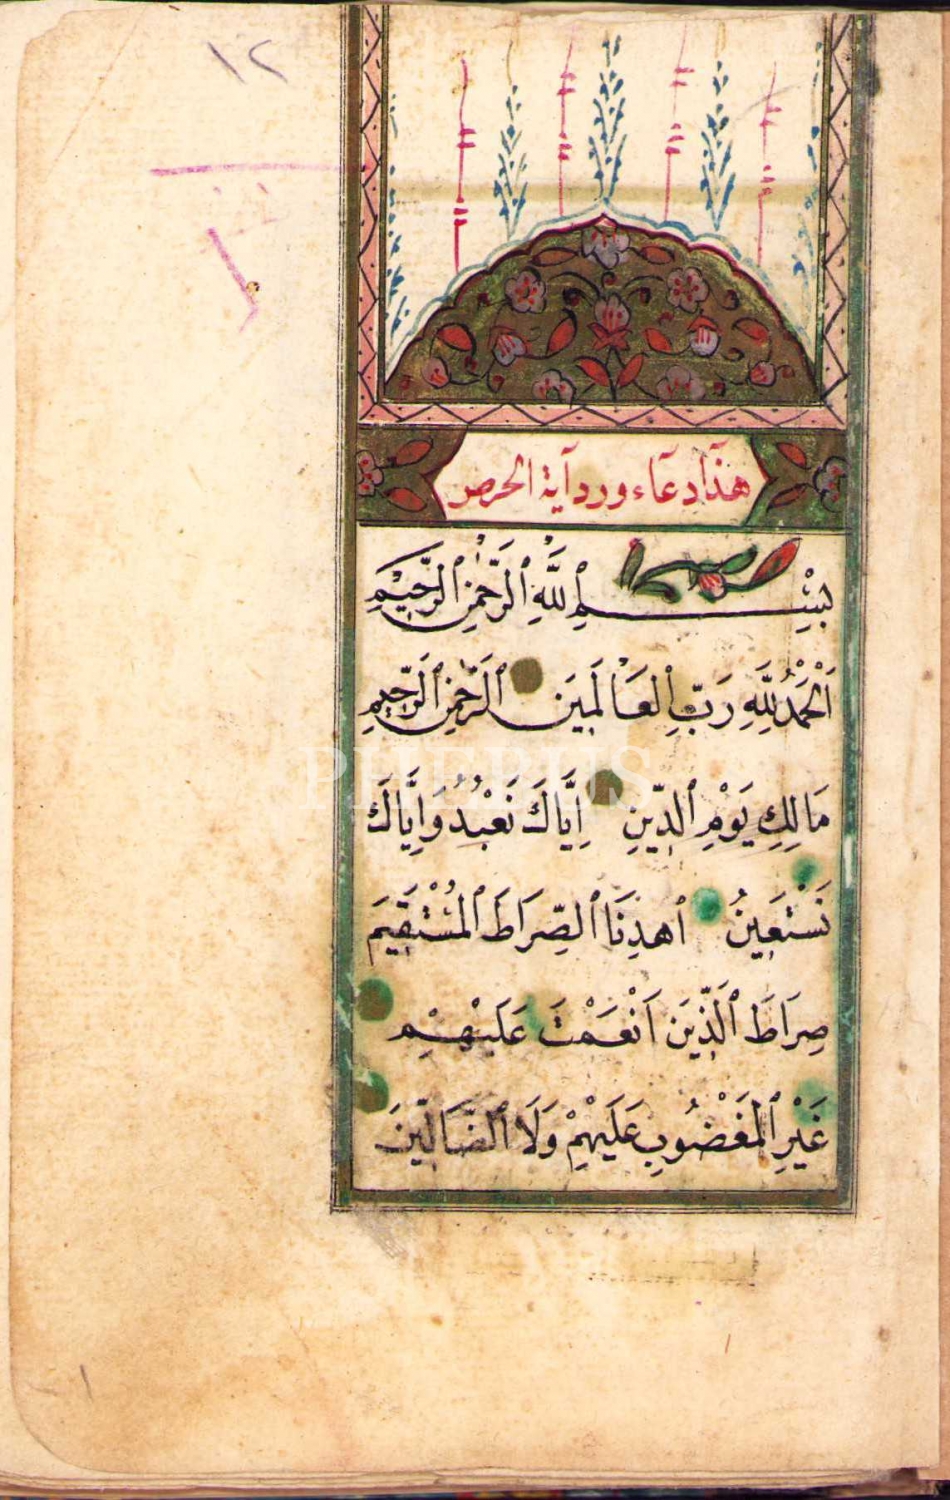 ١٢
هذا دعاء ورد آية الحرص
بِسْمِ ٱللَّهِ ٱلرَّحْمٰنِ ٱلرَّحِيمِ
اَلْحَمْدُ لِلَّهِ رَبِّ ٱلْعَالَمِينَ ٱلرَّحْمٰنِ ٱلرَّحِيمِ
مَالِكِ يَوْمِ ٱلدِّينِ اِيَّاكَ نَعْبُدُ وَاِيَّاكَ
نَسْتَعِينُ ٱهدِنَا ٱلصِّرَاطَ ٱلْمُسْتَقِيمَ
صِرَاطَ ٱلَّذِينَ اَنْعَمْتَ عَلَيْهِمْ
غَيْرِ ٱلْمَغْضُوبِ عَلَيْهِمْ وَلَا ٱلضَّالِّينَ
PHEBUS